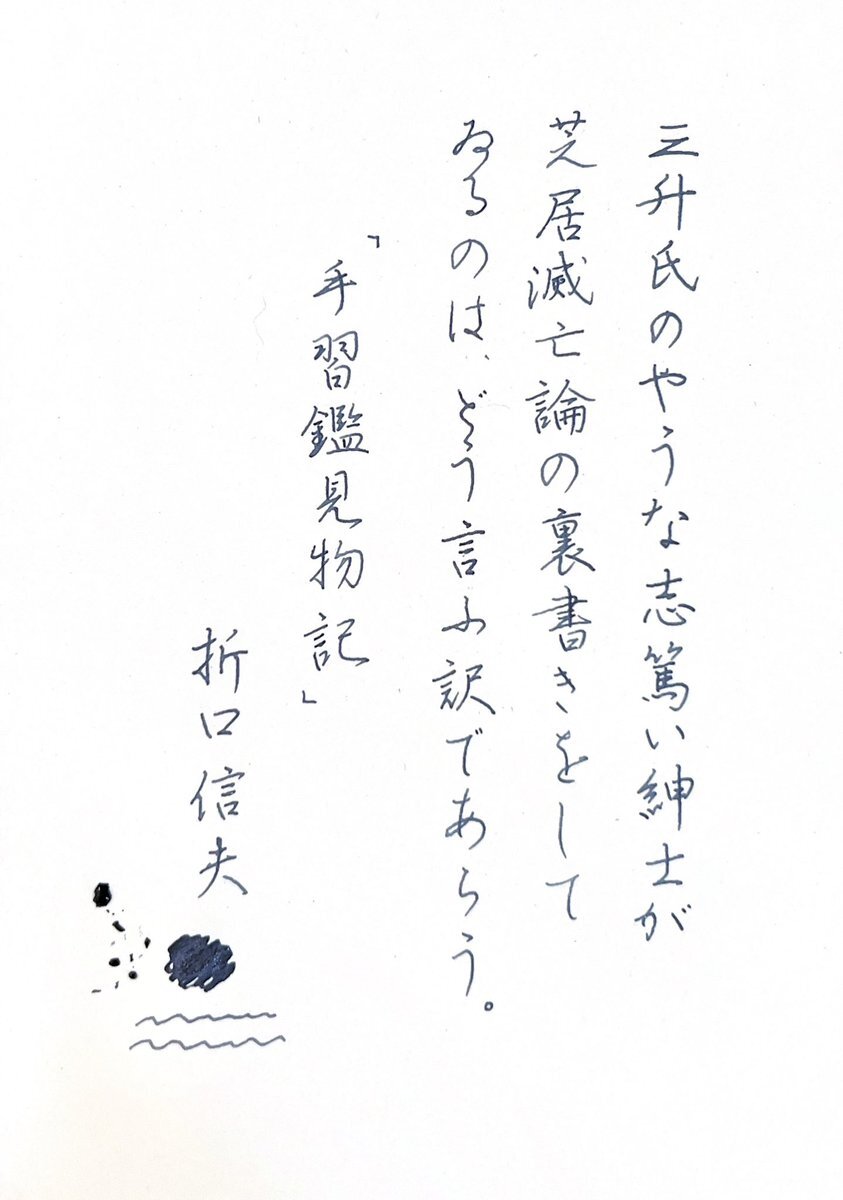 三升氏のやうな志篤い紳士が
芝居滅亡論の裏書きをして
ゐるのは、どう言ふ訳であらう。
「手習鑑見物記」
折口信夫